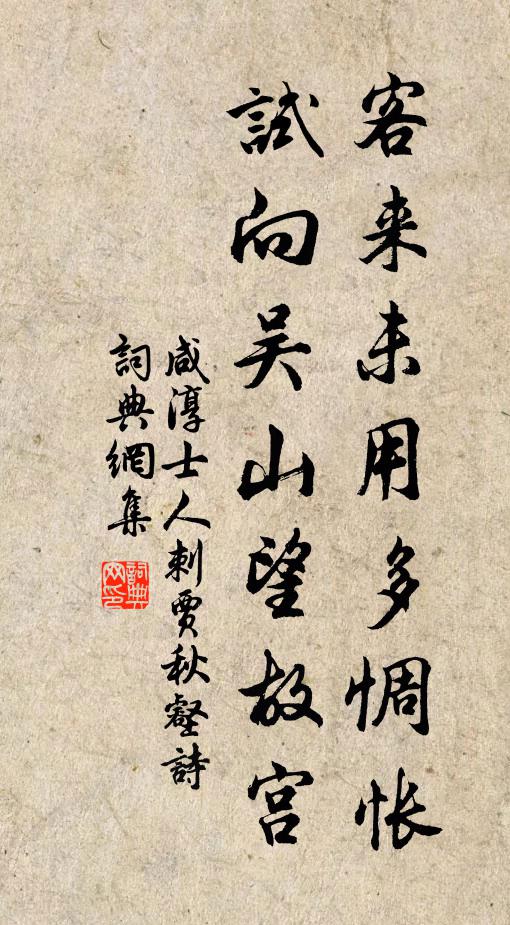 客来未用多惆怅
試向吴山望故宫
咸淳士人刺賈秋壑詩
詞典網集
詞典
网印